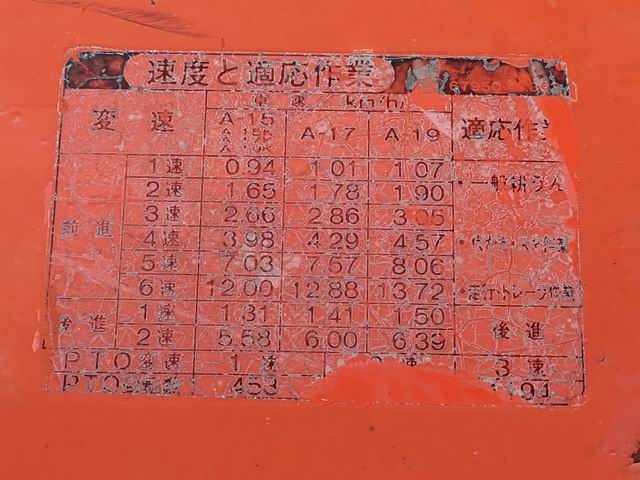 速度と適応作業
変速 車速 (km/h) 適応作業
A-15 A-17 A-19
前進 1速 0.94 1.01 1.07 ・一般耕うん
2速 1.65 1.78 1.90
3速 2.66 2.86 3.05
4速 3.98 4.29 4.57
5速 7.03 7.57 8.06
6速 12.00 12.88 13.72 ・走行・トレーラ作業
後進 1速 1.31 1.41 1.50 後進
2速 5.58 6.00 6.39
PTO変速 1速 速 3速
PTO回転数 453